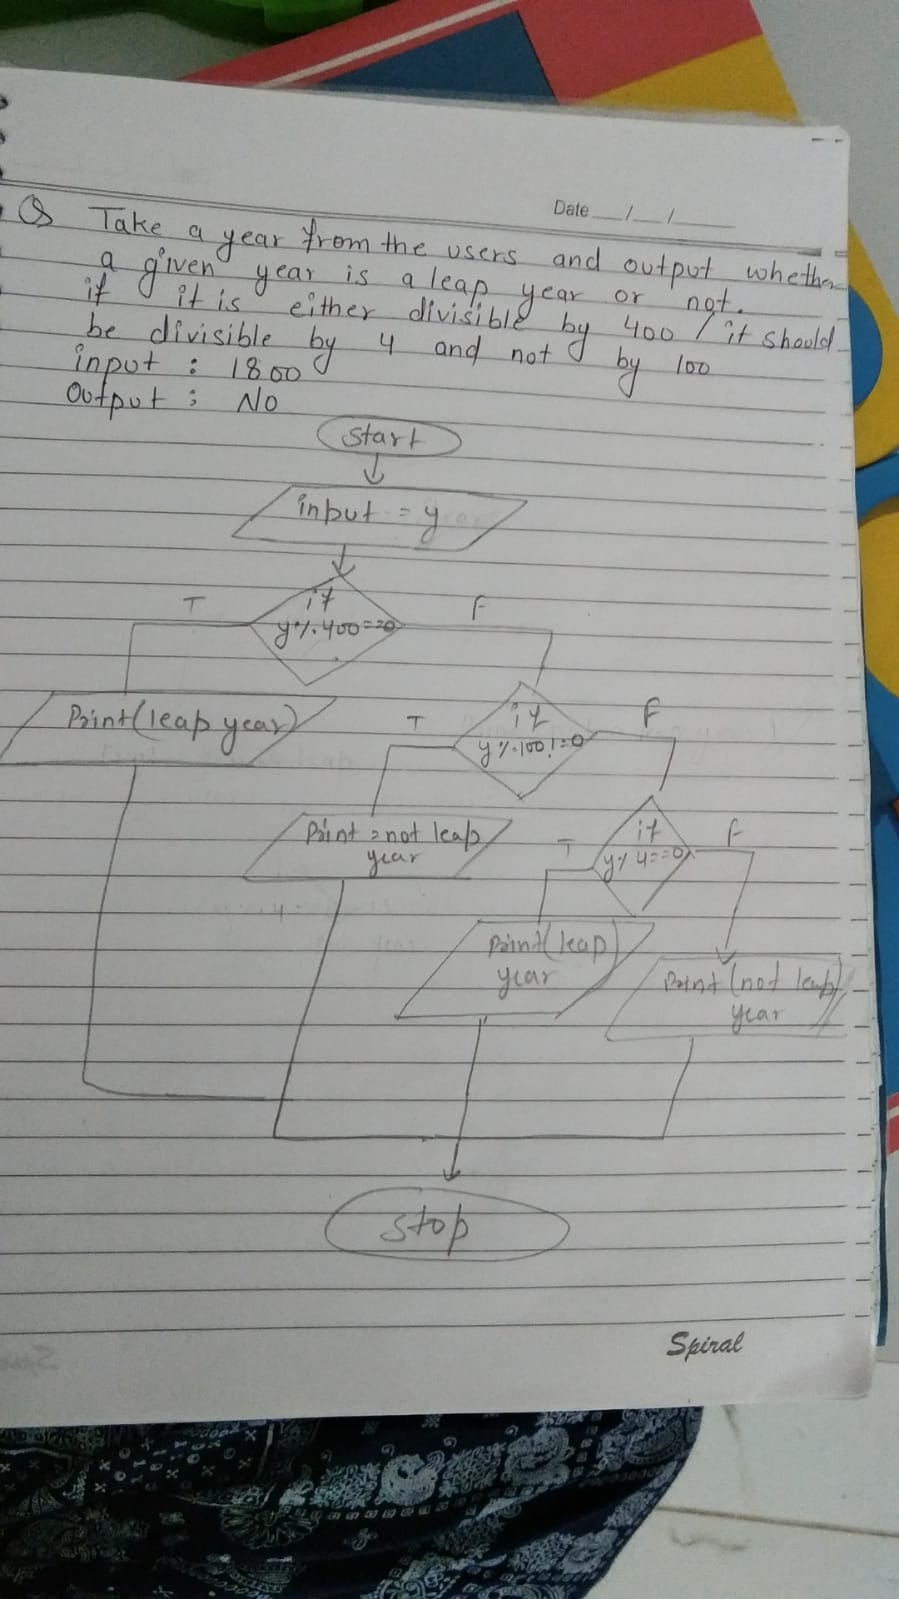 Date __/__/____
Q Take a year from the users and output whether
a given year is a leap year or not.
if it is either divisible by 400 / it should
be divisible by 4 and not by 100
input : 1800
Output : No
Start
input = y
if
T
F
y%400==0
Print(leap year)
if
T
F
y%100!=0
Print = not leap
year
if
T
F
y%4==0
Print(leap)
year
Print (not leap)
year
Stop
Spiral